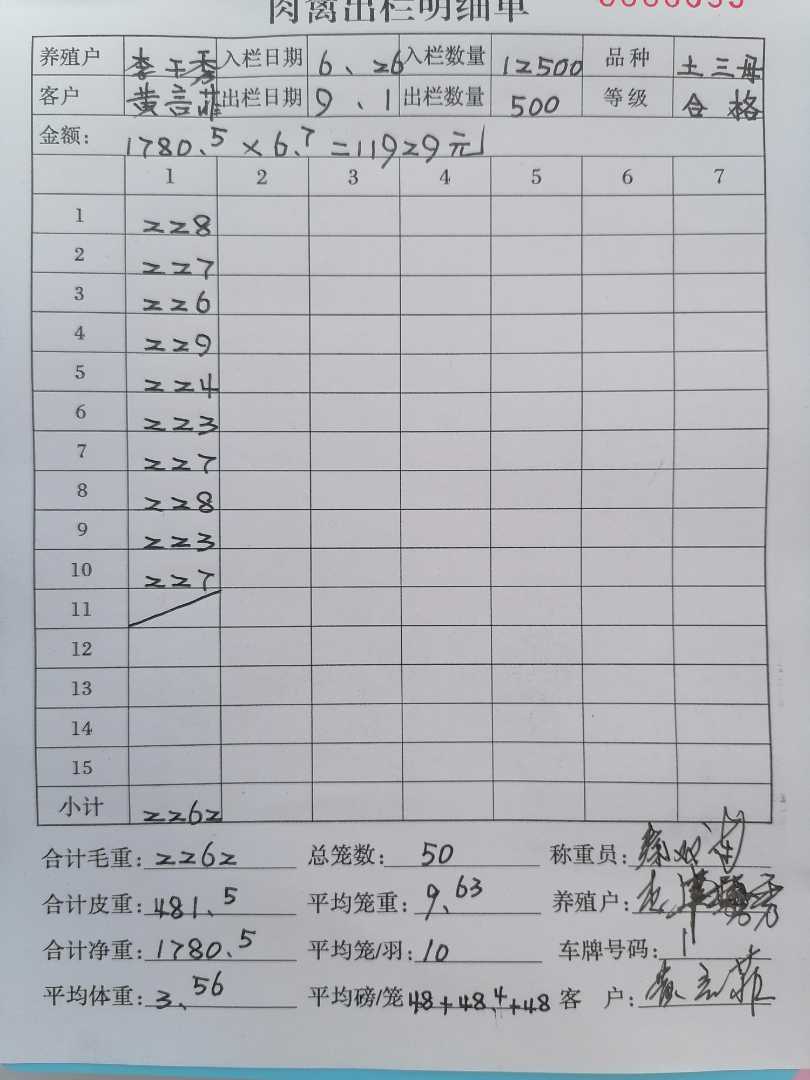 肉禽出栏明细单 0000055
养殖户 李干秀 入栏日期 6、26 入栏数量 12500 品种 土三母
客户 黄言菲 出栏日期 9、1 出栏数量 500 等级 合格
金额: 1780.5×6.7=11929元
1 2 3 4 5 6 7
1 228
2 227
3 226
4 229
5 224
6 223
7 227
8 228
9 223
10 227
11
12
13
14
15
小计 2262
合计毛重: 2262 总笼数: 50 称重员:
合计皮重: 481.5 平均笼重: 9.63 养殖户:
合计净重: 1780.5 平均笼/羽: 10 车牌号码:
平均体重: 3.56 平均磅/笼 48+48.4+48 客 户: 黄言菲